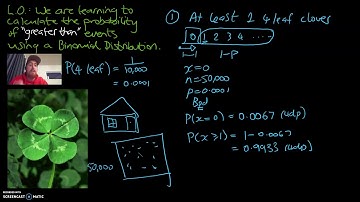 L.O.: We are learning to
calculate the probability
of "greater than" events
using a Binomial Distribution.
P(4 leaf) = 1/10,000
= 0.0001
50,000
① At least 1 4 leaf clover
0 1 2 3 4 ....
1-P
x=0
n=50,000
p=0.0001
Bpd
P(x=0) = 0.0067 (4dp)
P(x⩾1) = 1-0.0067
= 0.9933 (4dp)
RECORDED WITH
SCREENCAST-O-MATIC